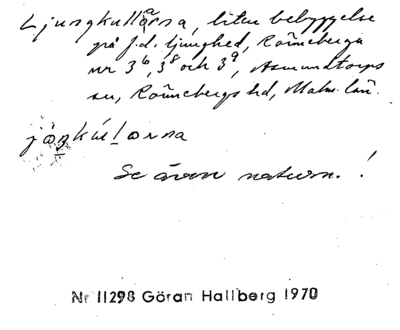 Ljungkullarna, liten bebyggelse
på f.d. ljunghed, Rönneberga
nr 3⁶, 3⁸ och 3⁹, Asmundtorps
sn, Rönnebergs hd, Malm. län.
jöŋkúḷarna
Se även naturn. !
Nr 11298 Göran Hallberg 1970